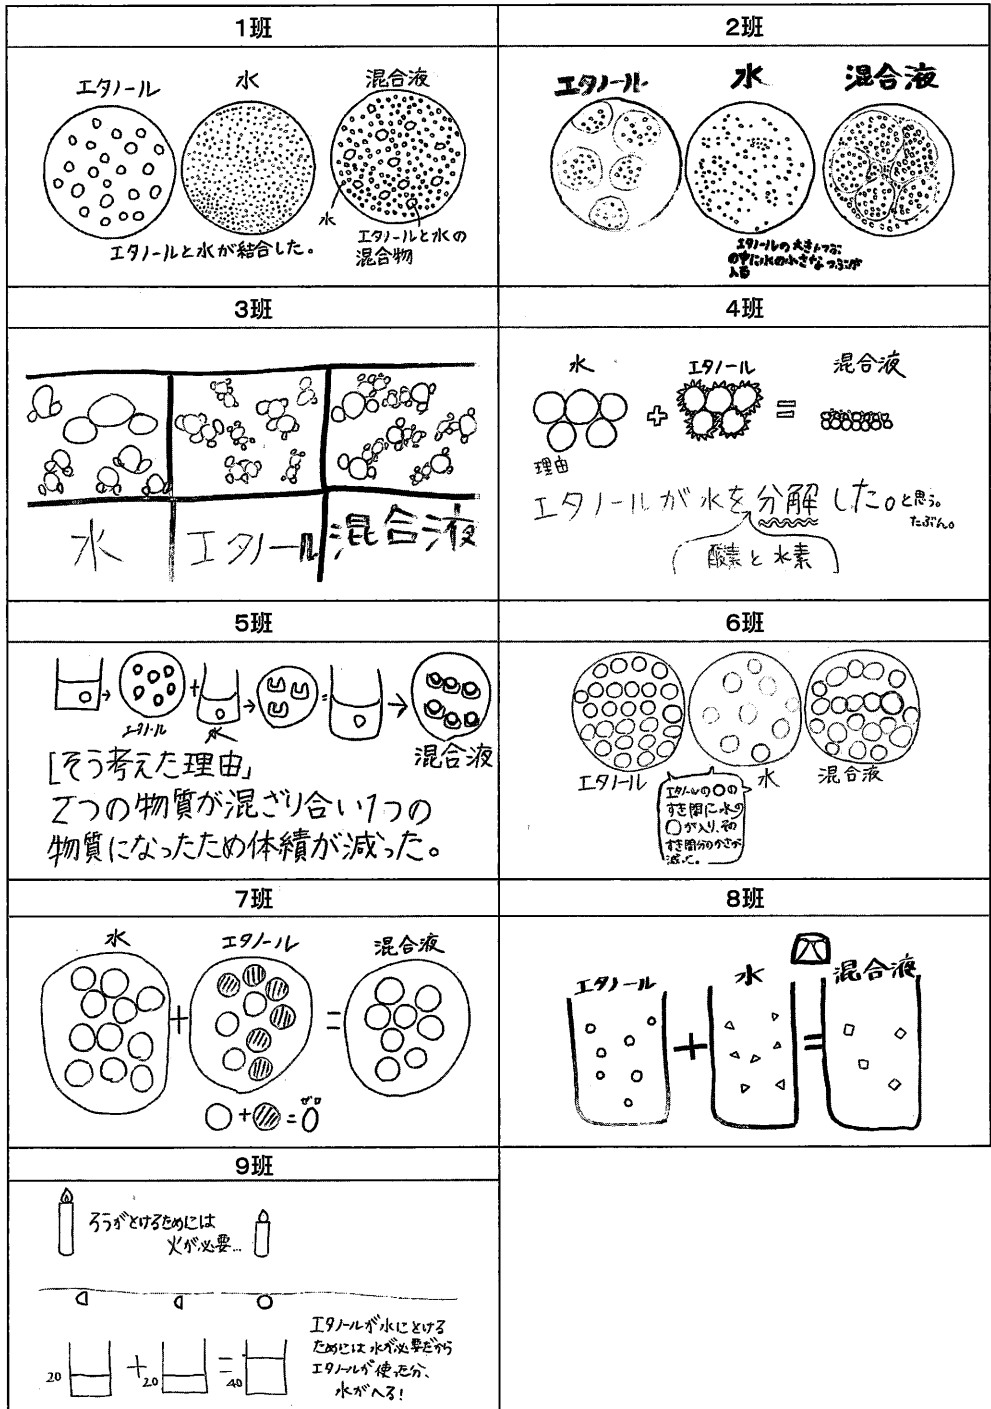 1班
エタノール
水
混合液
水
エタノールと水の
混合物
エタノールと水が結合した。
2班
エタノール
水
混合液
エタノールの大きなつぶ
の中に水の小さなつぶが
入る
3班
水
エタノール
混合液
4班
水
エタノール
混合液
+
=
理由
エタノールが水を分解した。と思う。
たぶん。
酸素と水素
5班
+
=
エタノール
水
混合液
[そう考えた理由」
2つの物質が混ざり合い1つの
物質になったため体績が減った。
6班
エタノール
水
混合液
エタノールの○の
すき間に水の
○が入り、その
すき間分のかさが
減った。
7班
水
エタノール
混合液
+
=
ゼロ
+ = 0
8班
六
エタノール
水
混合液
+
=
9班
ろうがとけるためには
火が必要...
20
+
20
=
40
エタノールが水にとける
ためには水が必要だから
エタノールが使った分、
水がへる!